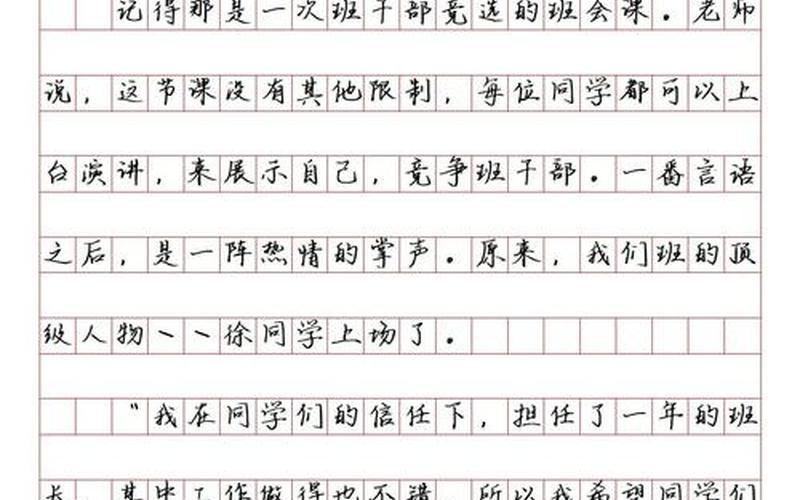 记得那是一次班干部竞选的班会课。老师
说，这节课没有其他限制，每位同学都可以上
台演讲，来展示自己，竞争班干部。一番言语
之后，是一阵热情的掌声。原来，我们班的顶
级人物——徐同学上场了。
“我在同学们的信任下，担任了一年的班
长，其中工作做得也不错，所以我希望同学们